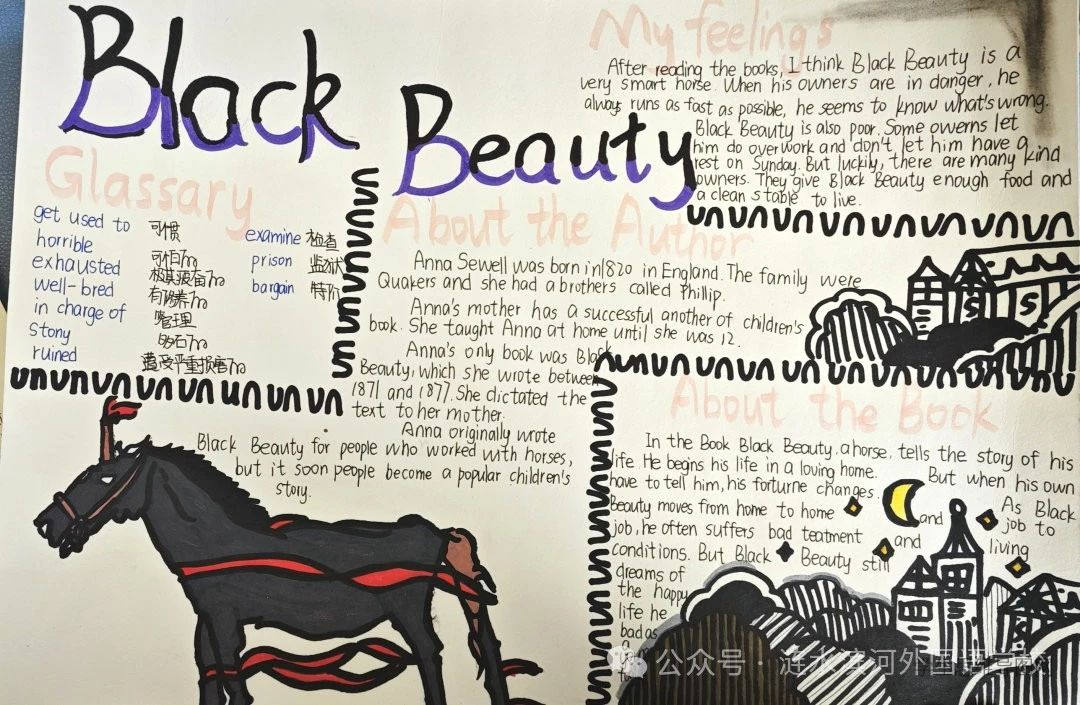 Black
Beauty
My feelings
After reading the books, I think Black Beauty is a
very smart horse. When his owners are in danger, he
always runs as fast as possible, he seems to know what's wrong.
Black Beauty is also poor. Some owerns let
him do over work and don't let him have a
rest on Sunday. But luckily, there are many kind
owners. They give Black Beauty enough food and
a clean stable to live.
Glassary
get used to 习惯
horrible 可怕的
exhausted 极其疲惫的
well-bred 有教养的
in charge of 管理
stony 多石的
ruined 遭受严重损害的
examine 检查
prison 监狱
bargain
About the Author
Anna Sewell was born in 1820 in England. The family were
Quakers and she had a brothers called Phillip.
Anna's mother has a successful another of children's
book. She taught Anna at home until she was 12.
Anna's only book was Black
Beauty, which she wrote between
1871 and 1877. She dictated the
text to her mother.
Anna originally wrote
Black Beauty for people who worked with horses,
but it soon people become a popular children's
story.
About the Book
In the Book Black Beauty, a horse, tells the story of his
life. He begins his life in a loving home. But when his own
have to tell him, his forturne changes. As Black
Beauty moves from home to home and job to
job, he often suffers bad teatment and living
conditions. But Black Beauty still
dreams of
the happy
life he
bad as
公众号 · 涟水滨河外国语学校